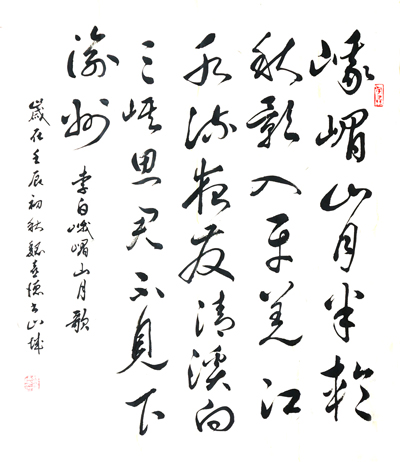 峨嵋山月半輪
秋影入平羌江
水流夜發清溪向
三峽思君不見下
渝州
李白峨嵋山月歌
歲在壬辰初秋山城